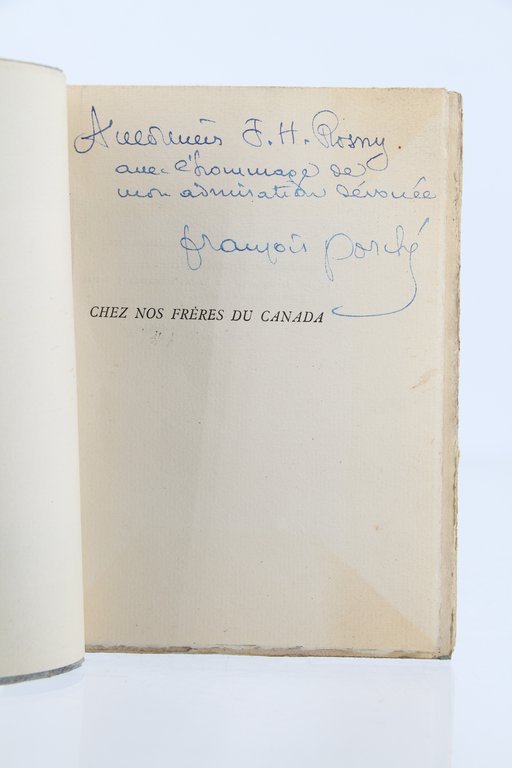 A monsieur J. H. Rosny
avec l'hommage de
mon admiration dévouée
françois porché
CHEZ NOS FRÈRES DU CANADA